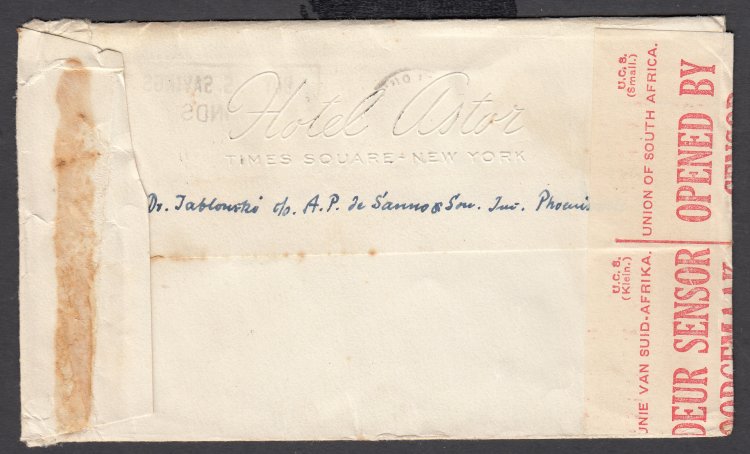 Hotel Astor
TIMES SQUARE - NEW YORK
Dr. Jablonski c/o. A.P. de Sanno & Son. Inc. Phoenix
U.C.S.
(Small.)
UNION OF SOUTH AFRICA.
OPENED BY
U.C.S.
(Klein.)
UNIE VAN SUID-AFRIKA.
DEUR SENSOR